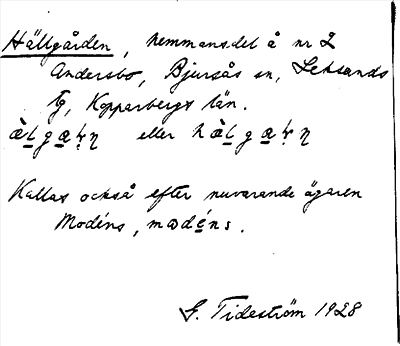 Hällgården, hemmansdel å nr 2
Andersbo, Bjursås sn, Leksands
tg, Kopparbergs län.
æ̀l̠gæ̠ṛŋ eller hæ̀l̠gæ̠ṛŋ
Kallas också efter nuvarande ägaren
Modéns, modé̠ns.
G. Tideström 1928